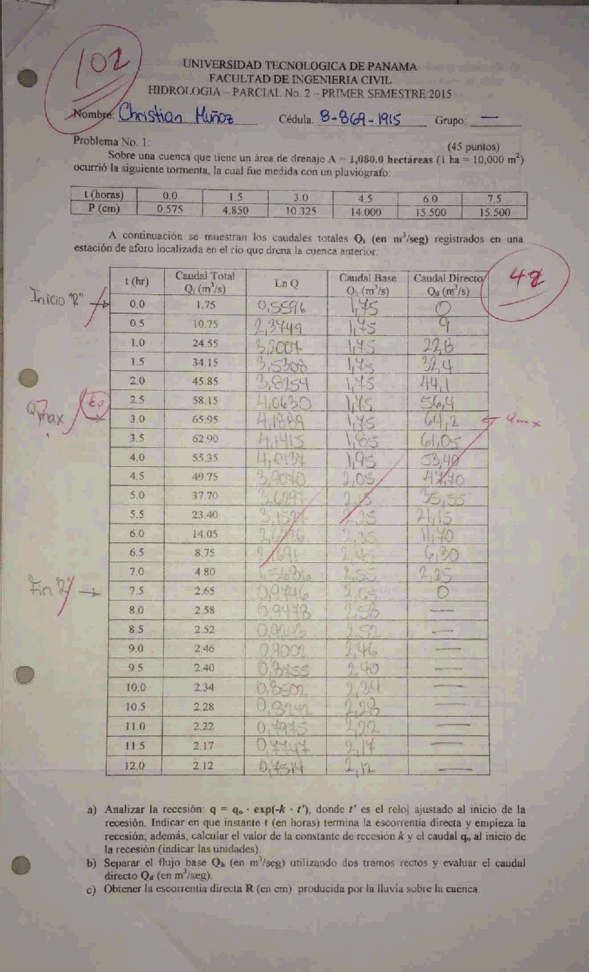 102
UNIVERSIDAD TECNOLOGICA DE PANAMA
FACULTAD DE INGENIERIA CIVIL
HIDROLOGIA – PARCIAL No. 2 – PRIMER SEMESTRE 2015
Nombre: Christian Muñoz Cédula: 8-869-1915 Grupo: —
Problema No. 1: (45 puntos)
Sobre una cuenca que tiene un área de drenaje A = 1,080.0 hectáreas (1 ha = 10,000 m²)
ocurrió la siguiente tormenta, la cual fue medida con un pluviógrafo:
t (horas) 0.0 1.5 3.0 4.5 6.0 7.5
P (cm) 0.575 4.850 10.325 14.000 15.500 15.500
A continuación se muestran los caudales totales Qt (en m³/seg) registrados en una
estación de aforo localizada en el río que drena la cuenca anterior:
t (hr) Caudal Total Qt (m³/s) Ln Q Caudal Base Qb (m³/s) Caudal Directo Qd (m³/s)
48
Inicio "R" → 0.0 1.75 0,5596 1,75 0
0.5 10.75 2,3749 1,75 9
1.0 24.55 3,2007 1,75 22,8
1.5 34.15 3,5308 1,75 32,4
2.0 45.85 3,8254 1,75 44,1
2.5 58.15 4,0630 1,75 56,4
Qmax tp → 3.0 65.95 4,1889 1,75 64,2 ← Qmax
3.5 62.90 4,1415 1,85 61,05
4.0 55.35 4,0137 1,95 53,40
4.5 49.75 3,9070 2,05 47,70
5.0 37.70 3,6297 2,15 35,55
5.5 23.40 3,1527 2,25 21,15
6.0 14.05 2,35 11,70
6.5 8.75 2,45 6,30
7.0 4.80 2,55 2,25
Fin "R" → 7.5 2.65 0,9746 2,65 0
8.0 2.58 0,9478 2,58 —
8.5 2.52 2,52 —
9.0 2.46 0,9002 2,46 —
9.5 2.40 0,8755 2,40 —
10.0 2.34 0,8502 2,34 —
10.5 2.28 0,8242 2,28 —
11.0 2.22 0,7975 2,22 —
11.5 2.17 0,7747 2,17 —
12.0 2.12 0,7514 2,12 —
a) Analizar la recesión: q = qo · exp(-k · t'), donde t' es el reloj ajustado al inicio de la
recesión. Indicar en que instante t (en horas) termina la escorrentía directa y empieza la
recesión; además, calcular el valor de la constante de recesión k y el caudal qo al inicio de
la recesión (indicar las unidades).
b) Separar el flujo base Qb (en m³/seg) utilizando dos tramos rectos y evaluar el caudal
directo Qd (en m³/seg).
c) Obtener la escorrentía directa R (en cm) producida por la lluvia sobre la cuenca.